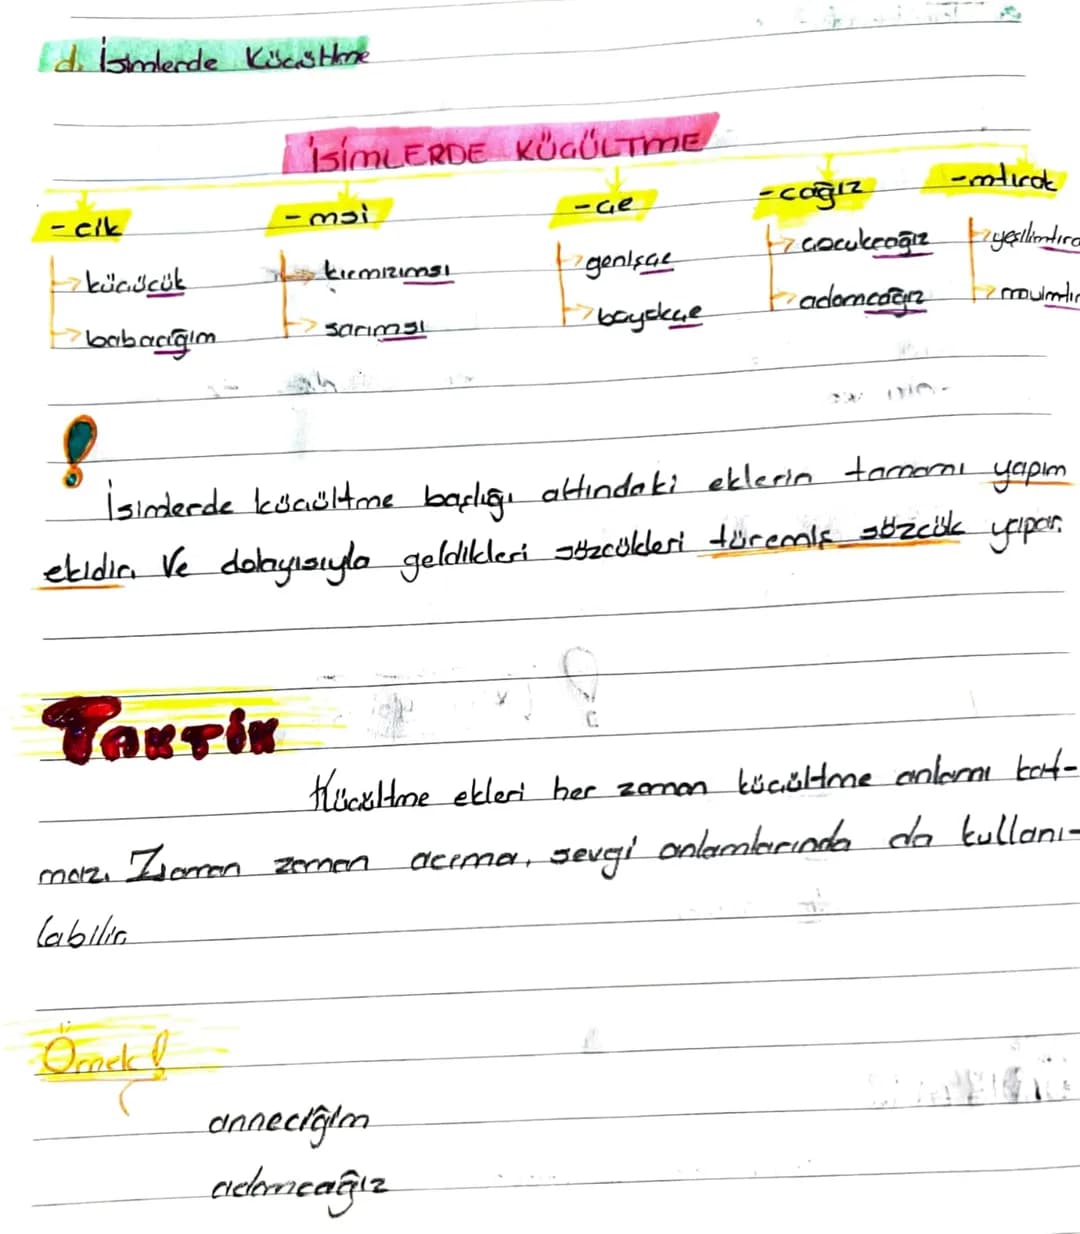 d. İsimlerde Küçültme
İSİMLERDE KÜÇÜLTME
-cik -msi -çe -cağız -mtırak
küçücük kırmızımsı genişçe çocukcağız yeşilimtıra
babacığım sarımsı büyükçe adamcağız mavimtır
! İsimlerde küçültme başlığı altındaki eklerin tamamı yapım
ekidir. Ve dolayısıyla geldikleri sözcükleri türemiş sözcük yapar.
TAKTİK
Küçültme ekleri her zaman küçültme anlamı kat-
maz. Zaman zaman acıma, sevgi anlamlarında da kullanı-
labilir.
Örnek!
anneciğim
adamcağız